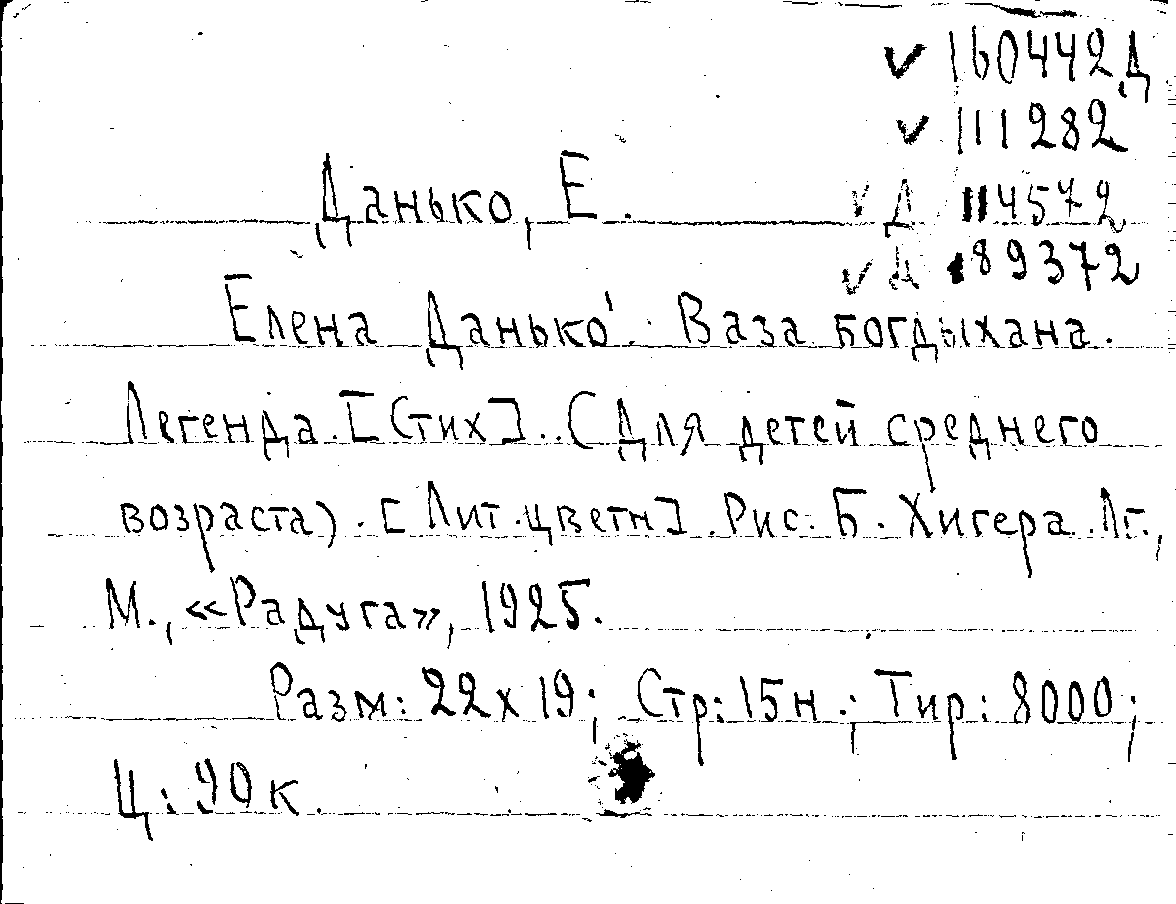 ✓ 160442Д
✓ 111282
Данько, Е.
✓ Д 114572
✓ Д 89372
Елена Данько́. Ваза богдыхана.
Легенда. [Стих]. (Для детей среднего
возраста). [Лит. цветн]. Рис. Б. Хигера. Лг.,
М., «Радуга», 1925.
Разм: 22х19; Стр: 15н.; Тир: 8000;
Ц: 90к.